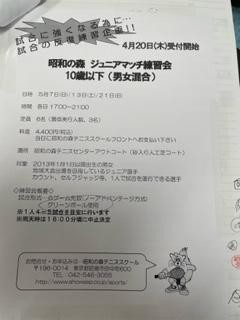 試合に強くなる為に…
試合の反復練習企画!!
4月20日(木)受付開始
昭和の森 ジュニアマッチ練習会
10歳以下(男女混合)
日時 5月7日(日)/13日(土)/21日(日)
時間 各日 17:00~21:00
定員 6名(最低実行人数、3名)
料金 4,400円(税込)
当日に昭和の森テニススクールフロントへお支払い下さい。
場所 昭和の森テニスセンターアウトコート(砂入り人工芝コート)
対象 2013年1月1日以降出生の男女
地域大会出場を目指しているジュニア選手
カウント、セルフジャッジ等、1人で試合を進行できる選手
◇練習会概要◇
試合形式…6ゲーム先取(ノーアドバンテージ方式)
グリーンボール使用
※1人4~5試合を目安に行います
※雨天時は16:00に中止決定
お問合せ・お申込みは…昭和の森テニススクール
〒196-0014 東京都昭島市田中町600
TEL:042-546-3055